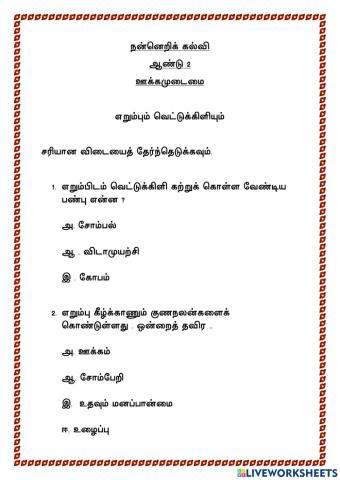 நன்னெறிக் கல்வி
ஆண்டு 2
ஊக்கமுடைமை
எறும்பும் வெட்டுக்கிளியும்
சரியான விடையைத் தேர்ந்தெடுக்கவும்.
1. எறும்பிடம் வெட்டுக்கிளி கற்றுக் கொள்ள வேண்டிய
பண்பு என்ன ?
அ. சோம்பல்
ஆ . விடாமுயற்சி
இ . கோபம்
2. எறும்பு கீழ்க்காணும் குணநலன்களைக்
கொண்டுள்ளது . ஒன்றைத் தவிர ..
அ. ஊக்கம்
ஆ. சோம்பேறி
இ. உதவும் மனப்பான்மை
ஈ. உழைப்பு
LIVEWORKSHEETS